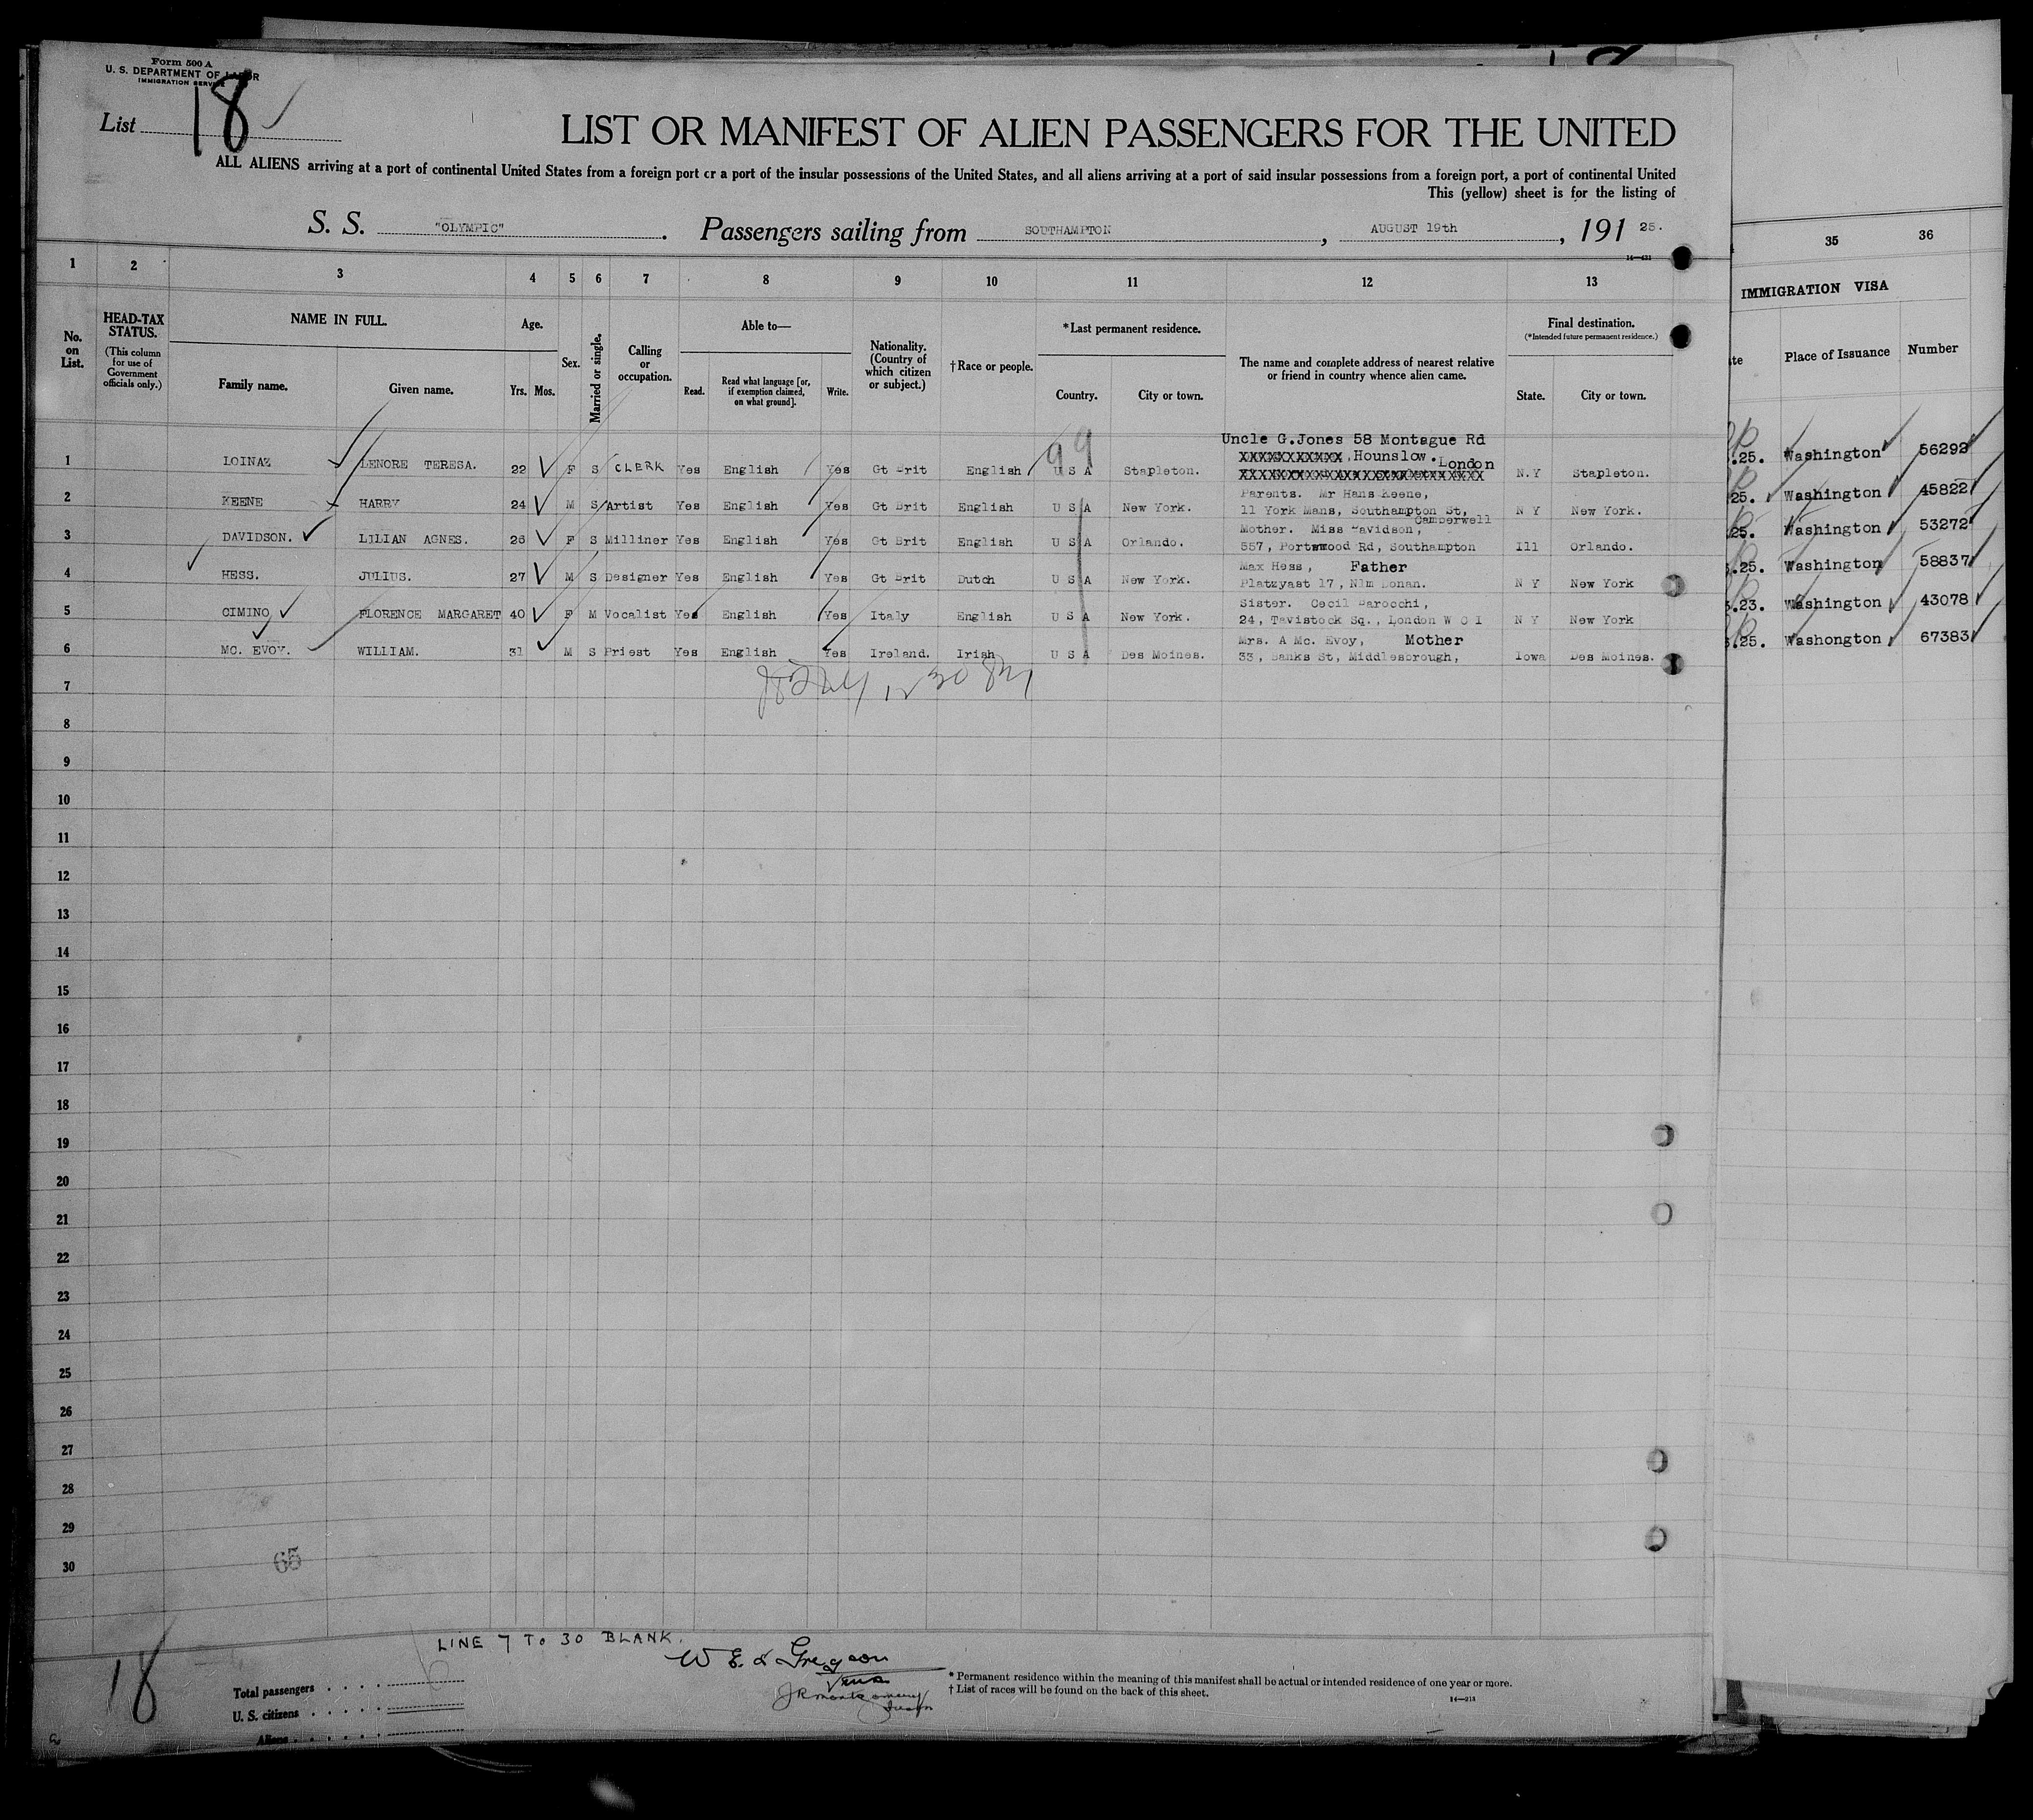 Form 500 A
U. S. DEPARTMENT OF LABOR
IMMIGRATION SERVICE
List 18
LIST OR MANIFEST OF ALIEN PASSENGERS FOR THE UNITED
ALL ALIENS arriving at a port of continental United States from a foreign port or a port of the insular possessions of the United States, and all aliens arriving at a port of said insular possessions from a foreign port, a port of continental United
This (yellow) sheet is for the listing of
S. S. "OLYMPIC". Passengers sailing from SOUTHAMPTON, AUGUST 19th, 191 25.
14—431
1 2 3 4 5 6 7 8 9 10 11 12 13
35 36
No. on List.
HEAD-TAX STATUS.
(This column for use of Government officials only.)
NAME IN FULL.
Family name. Given name.
Age.
Yrs. Mos.
Sex.
Married or single.
Calling or occupation.
Able to—
Read. Read what language [or, if exemption claimed, on what ground]. Write.
Nationality. (Country of which citizen or subject.)
†Race or people.
*Last permanent residence.
Country. City or town.
The name and complete address of nearest relative or friend in country whence alien came.
Final destination.
(*Intended future permanent residence.)
State. City or town.
IMMIGRATION VISA
Place of Issuance Number
Uncle G.Jones 58 Montague Rd
1 LOINAZ LENORE TERESA. 22 F S CLERK Yes English Yes Gt Brit English U S A Stapleton. Hounslow. London N.Y Stapleton. .25. Washington 56292
2 KEENE HARRY 24 M S Artist Yes English Yes Gt Brit English U S A New York. Parents. Mr Hans Keene, 11 York Mans, Southampton St, Camberwell N Y New York. 25. Washington 45822
3 DAVIDSON. LILIAN AGNES. 26 F S Milliner Yes English Yes Gt Brit English U S A Orlando. Mother. Miss Davidson, 557, Portswood Rd, Southampton Ill Orlando. 25. Washington 53272
4 HESS. JULIUS. 27 M S Designer Yes English Yes Gt Brit Dutch U S A New York. Max Hess, Father Platzyast 17, Nlm Donan. N Y New York .25. Washington 58837
5 CIMINO FLORENCE MARGARET 40 F M Vocalist Yes English Yes Italy English U S A New York. Sister. Cecil Parocchi, 24, Tavistock Sq., London W C I N Y New York .23. Washington 43078
6 MC. EVOY. WILLIAM. 31 M S Priest Yes English Yes Ireland. Irish U S A Des Moines. Mrs. A Mc. Evoy, Mother 33, Banks St, Middlesbrough, Iowa Des Moines. .25. Washongton 67383
99
7
8
9
10
11
12
13
14
15
16
17
18
19
20
21
22
23
24
25
26
27
28
29
30
65
LINE 7 TO 30 BLANK.
18
W E. & Gregson
Total passengers
U. S. citizens
Aliens
* Permanent residence within the meaning of this manifest shall be actual or intended residence of one year or more.
† List of races will be found on the back of this sheet.
14—213